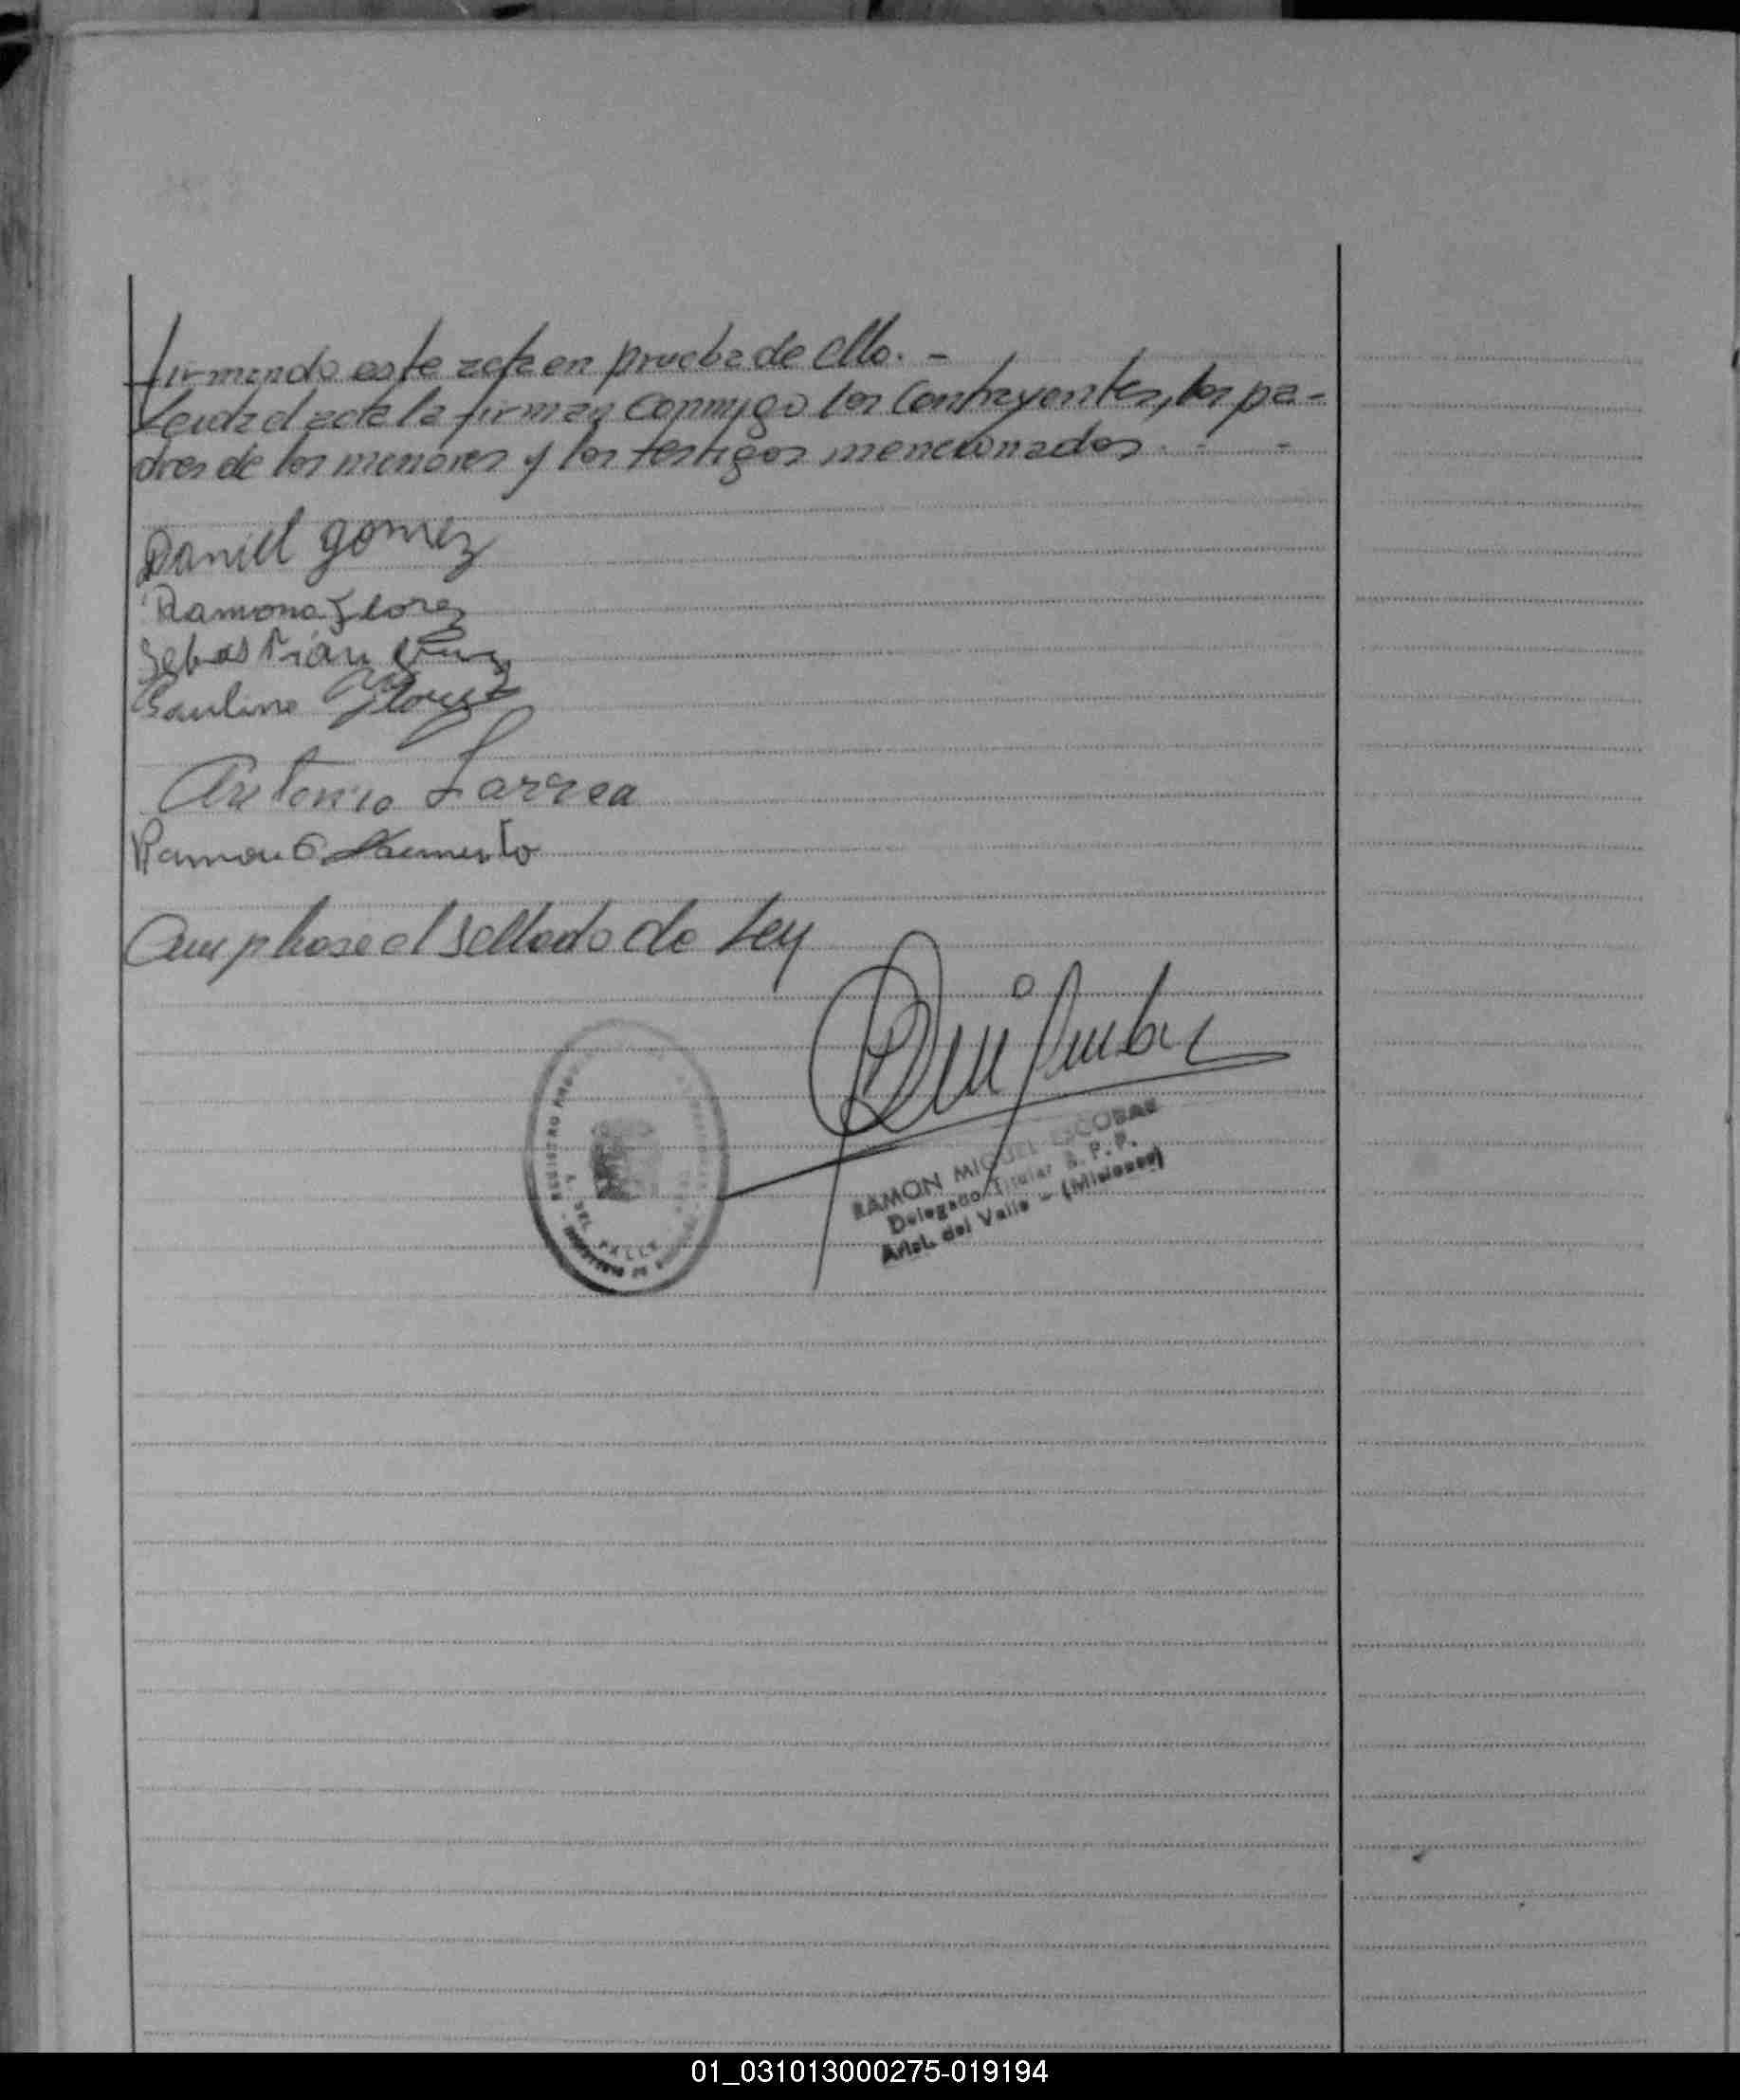 firmando este acta en prueba de ello. -
Leida el acta la firman conmigo los contrayentes, los pa-
dres de los menores y los testigos mencionados. - -
Daniel gomez
Ramona Flores
Sebastián
Paulino Flores
Antonio Larrea
Ramon G. Sarmiento
Cumplase el sellado de Ley
REGISTRO
DEL VALLE
RAMON MIGUEL ESCOBAR
Delegado Titular R. P. P.
Arist. del Valle - (Misiones)
01_031013000275-019194